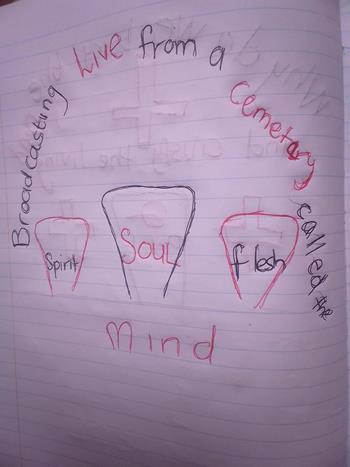 Broadcasting Live from a Cemetary called the
Spirit
Soul
flesh
Mind